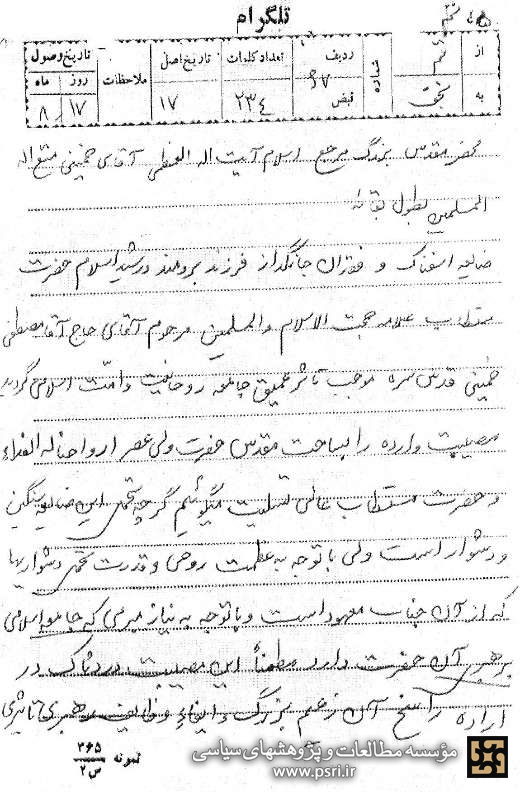 تلگرام
از قم
به نجف
شماره
ردیف ۶۷
قبض
تعداد کلمات
۲۳۴
تاریخ اصل
۱۷
ملاحظات
تاریخ وصول
روز ماه
۱۷ ۸
محضر مقدس بزرگ مرجع اسلام آیت اله العظمی آقای خمینی متع اله
المسلمین بطول بقائه
ضایعه اسفناک و فقدان جانگداز فرزند برومند و رشید اسلام حضرت
مستطاب علامه حجت الاسلام والمسلمین مرحوم آقای حاج آقا مصطفی
خمینی قدس سره موجب تاثر عمیق جامعه روحانیت و امت اسلامی گردید
مصیبت وارده را بساحت مقدس حضرت ولی عصر ارواحنا له الفداء
و حضرت مستطاب عالی تسلیت میگوئیم گرچه تحمل این ضایعه سنگین
و دشوار است ولی با توجه به عظمت روحی و قدرت تحمل دشواریها
که از آن جناب معهود است و با توجه به نیاز مبرمی که جامعه اسلامی
برهبری آن حضرت دارد مطمئناً این مصیبت دردناک در
اراده راسخ آن زعیم بزرگ و ایفاء وظایف رهبری تاثیری
نمونه ۳۶۵
س۲
مؤسسه مطالعات و پژوهشهای سیاسی
www.psri.ir